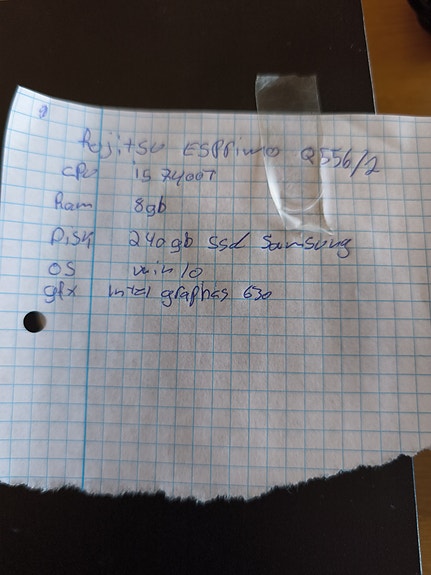 Fujitsu ESPRimo Q556/2
CPU i5 7400T
Ram 8gb
Disk 240gb ssd Samsung
OS win 10
gfx intel graphics 630